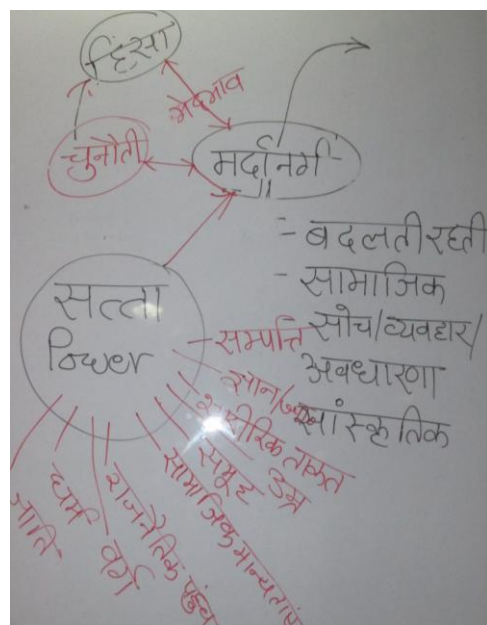 हिंसा
भेदभाव
चुनौती
मर्दानगी
= बदलती रहती
- सामाजिक
सोच/व्यवहार/
अवधारणा
सांस्कृतिक
सत्ता
Power
- सम्पत्ति
ज्ञान/
शारीरिक ताकत
उम्र
समूह
सामाजिक मान्यताएं
राजनैतिक पहुंच
वर्ग
धर्म
जाति